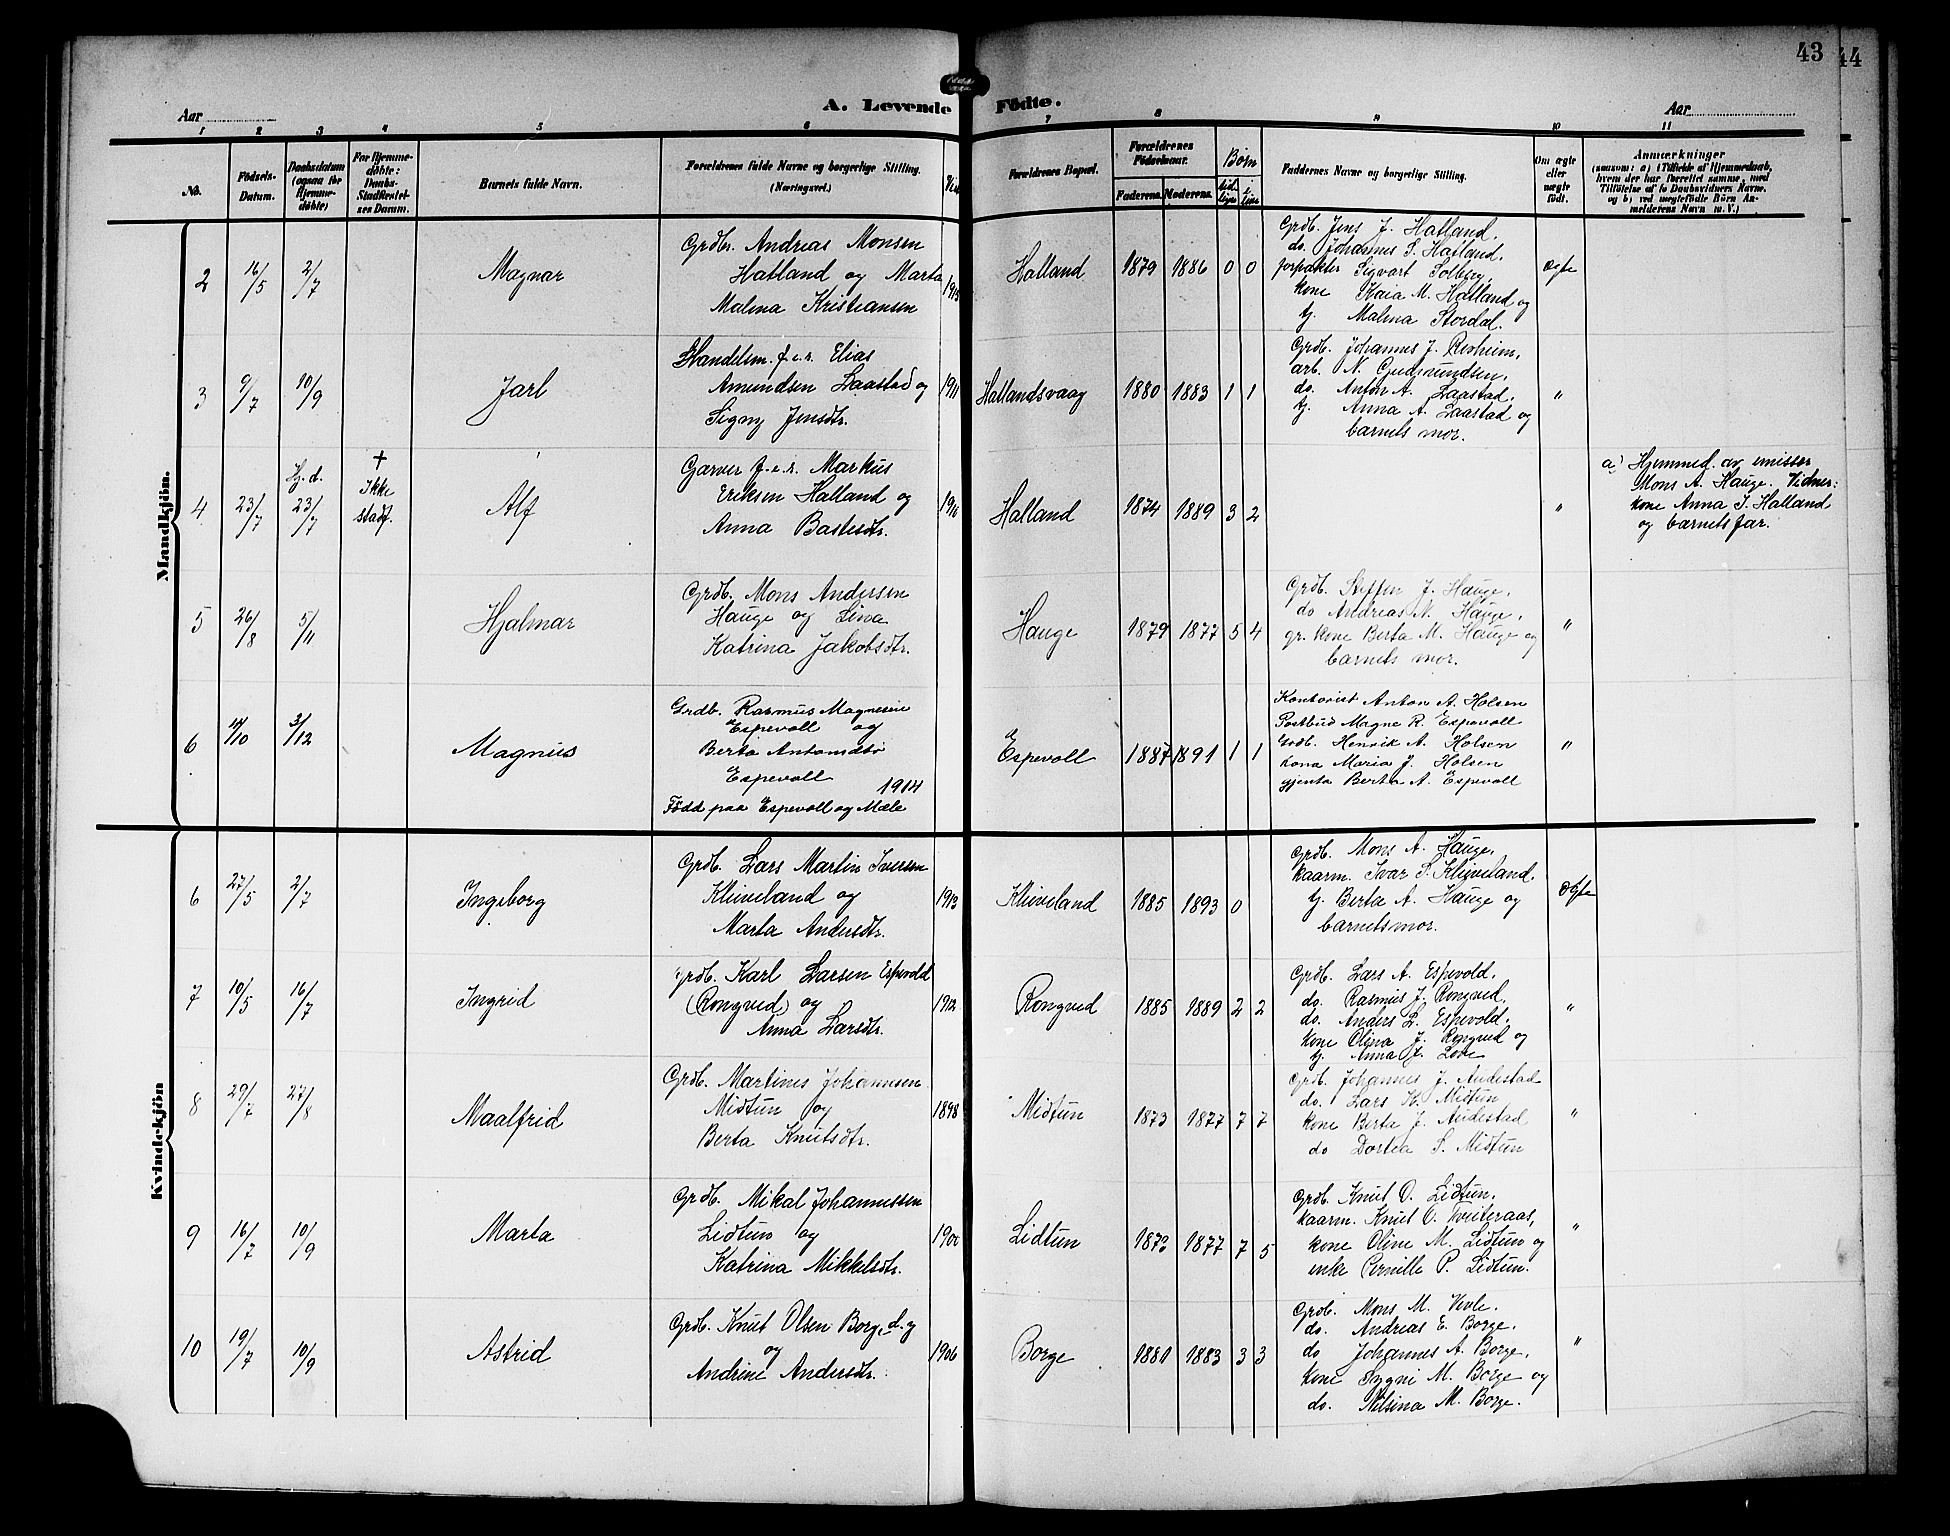 43
44
A. Levende Födte.
Aar
Aar
1 2 3 4 5 6 7 8 9 10 11
No.
Födsels-Datum.
Daabsdatum (ogsaa for Hjemme-döbte)
For Hjemme-döbte: Daabs-Stadfæstel-ses Datum.
Barnets fulde Navn.
Forældrenes fulde Navne og borgerlige Stilling. (Næringsvei.)
Forældrenes Bopæl.
Forældrenes Födselsaar.
Faderens. Moderens.
Börn
Faddernes Navne og borgerlige Stilling.
Om ægte eller uægte födt.
Anmærkninger
(saasom: a) Tilfælde af Hjemmedaab, hvem der har forrettet samme, med Tilföielse af to Daabsvidners Navne, og b) ved uægtefödte Börn An-melderens Navn m. V.)
Mandkjön.
2 16/5 2/7 Magnar
Grdbr. Andreas Monsen
Hatland og Marta
Malena Kristiansen
1915
Halland 1879 1886 0 0
Grdb. Jens J. Hatland.
do. Johannes S. Hatland.
forpakter Sigvart Solberg,
kone Kaia M. Hatland og
tj. Malena Stordal.
ægte
3 9/7 10/9 Jarl
Handelsm. f.e.r. Elias
Amundsen Laastad og
Signy Jensdtr.
1911
Hallandsvaag 1880 1883 1 1
Grdb. Johannes J. Risheim.
arb. N. Gudmundsen.
do. Anton A. Laastad.
tj. Anna A. Laastad og
barnets mor.
"
4 23/7 Hj.d. 23/7 + Ikke stadf. Alf
Garver f.e.r. Markus
Eriksen Halland og
Anna Bastesdtr.
1910
Halland 1874 1889 3 2
"
a) Hjemmed. av emissær
Mons A. Hauge. Vidner:
kone Anna I. Halland
og barnets far.
5 26/8 5/11 Hjalmar
Grdb. Mons Andersen
Hauge og Lina
Katrina Jakobsdtr.
Hauge 1879 1877 5 4
Grdb. Steffen J. Hauge.
do Andreas N. Hauge.
gr. kone Berta M. Hauge og
barnets mor.
"
6 14/10 3/12 Magnus
Grdb. Rasmus Magnesen
Espevoll og
Berta Antonsdtr
Espevoll 1914
Född paa Espevoll og Mæle
Espevoll 1887 1891 1 1
Kontorist Anton A. Holsen
Postbud Magne R. Espevoll
Grdb. Henrik A. Holsen
kona Maria J. Holsen
gjenta Berta A. Espevoll
"
Kvindekjön
6 27/5 2/7 Ingeborg
Grdb. Lars Martin Iversen
Kleiveland og
Marta Andersdtr.
1913
Kleiveland 1885 1893 0
Grdb. Mons A. Hauge.
kaarm. Ivar S. Kleiveland.
tj. Berta A. Hauge og
barnets mor.
ægte
7 10/5 16/7 Ingrid
Grdb. Karl Larsen Espevold
(Rongved) og
Anna Larsdtr.
1912
Rongved 1885 1889 2 2
Grdb. Lars A. Espevold.
do. Rasmus J. Rongved.
do. Anders L. Espevold.
kone Olina J. Rongved og
tj. Anna J. Love
"
8 29/7 27/8 Maalfrid
Grdb. Martines Johannsen
Midtun og
Berta Knutsdtr.
1898
Midtun 1873 1877 7 7
Grdb. Johannes J. Audestad
do. Lars K. Midtun
kone Berta J. Audestad
do Dortea S. Midtun
"
9 16/7 10/9 Marta
Grdb. Mikal Johannessen
Lidtun og
Katrina Mikkelsdtr.
1900
Lidtun 1877 7 5
Grdb. Knut O. Lidtun.
kaarm. Knut O. Kviteraas,
kone Oline M. Lidtun og
enke Pernille P. Lidtun.
"
10 19/7 10/9 Astrid
Grdb. Knut Olsen Borge, d.y
og
Andrine Andersdtr.
1906
Borge 1881 1883 3 3
Grdb. Mons M. Vevle.
do. Andreas E. Borge.
do Johannes A. Borge,
kone Sygni M. Borge og
do. Nilsina M. Borge.
"